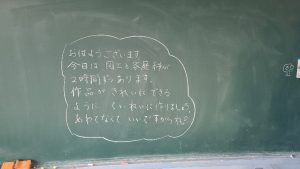 おはようございます
今日は 図工と家庭科が
2時間ずつあります。
作品が きれいにできる
ように ていねいに作りましょう
あわてなくて いいですからね